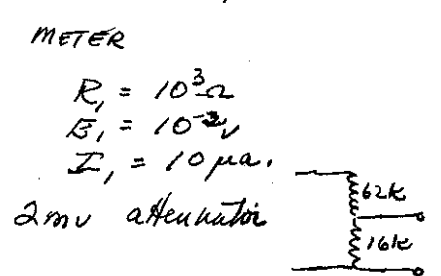 METER
R₁ = 10³Ω
E₁ = 10⁻²v
I₁ = 10 μa.
2mv attenuator
62k
16k